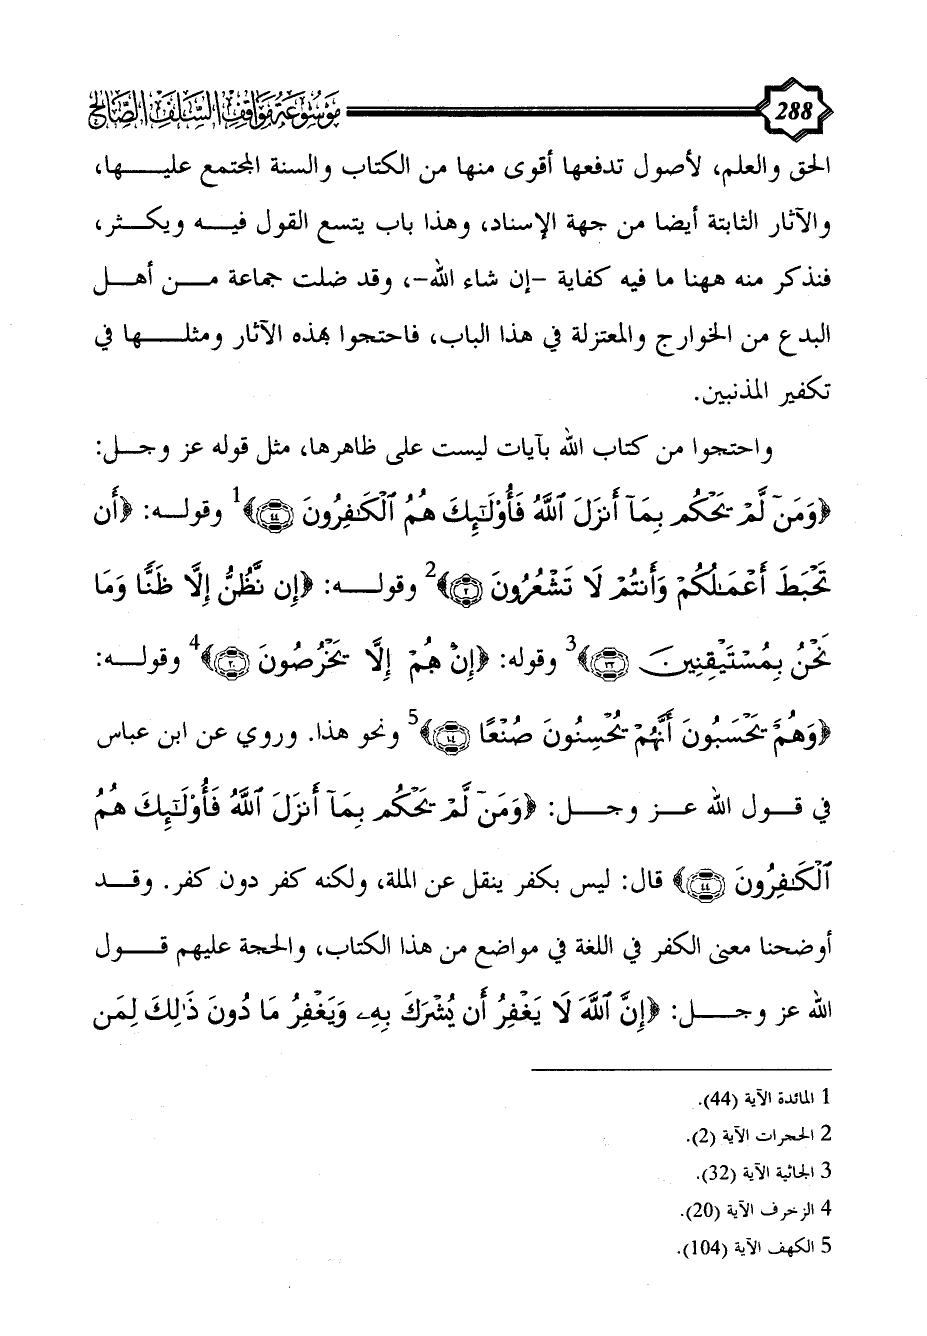 288 موسوعة مواقف السلف الصالح
الحق والعلم، لأصول تدفعها أقوى منها من الكتاب والسنة المجتمع عليها،
والآثار الثابتة أيضا من جهة الإسناد، وهذا باب يتسع القول فيه ويكثر،
فنذكر منه ههنا ما فيه كفاية -إن شاء الله-، وقد ضلت جماعة من أهل
البدع من الخوارج والمعتزلة في هذا الباب، فاحتجوا بهذه الآثار ومثلها في
تكفير المذنبين.
واحتجوا من كتاب الله بآيات ليست على ظاهرها، مثل قوله عز وجل:
﴿وَمَن لَّمْ يَحْكُم بِمَآ أَنزَلَ ٱللَّهُ فَأُوْلَٰٓئِكَ هُمُ ٱلْكَٰفِرُونَ ٤٤﴾1 وقوله: ﴿أَن
تَحْبَطَ أَعْمَٰلُكُمْ وَأَنتُمْ لَا تَشْعُرُونَ ٢﴾2 وقوله: ﴿إِن نَّظُنُّ إِلَّا ظَنًّا وَمَا
نَحْنُ بِمُسْتَيْقِنِينَ ٣٢﴾3 وقوله: ﴿إِنْ هُمْ إِلَّا يَخْرُصُونَ ٢٠﴾4 وقوله:
﴿وَهُمْ يَحْسَبُونَ أَنَّهُمْ يُحْسِنُونَ صُنْعًا ١٠٤﴾5 ونحو هذا. وروي عن ابن عباس
في قول الله عز وجل: ﴿وَمَن لَّمْ يَحْكُم بِمَآ أَنزَلَ ٱللَّهُ فَأُوْلَٰٓئِكَ هُمُ
ٱلْكَٰفِرُونَ ٤٤﴾ قال: ليس بكفر ينقل عن الملة، ولكنه كفر دون كفر. وقد
أوضحنا معنى الكفر في اللغة في مواضع من هذا الكتاب، والحجة عليهم قول
الله عز وجل: ﴿إِنَّ ٱللَّهَ لَا يَغْفِرُ أَن يُشْرَكَ بِهِۦ وَيَغْفِرُ مَا دُونَ ذَٰلِكَ لِمَن
1 المائدة الآية (44).
2 الحجرات الآية (2).
3 الجاثية الآية (32).
4 الزخرف الآية (20).
5 الكهف الآية (104).